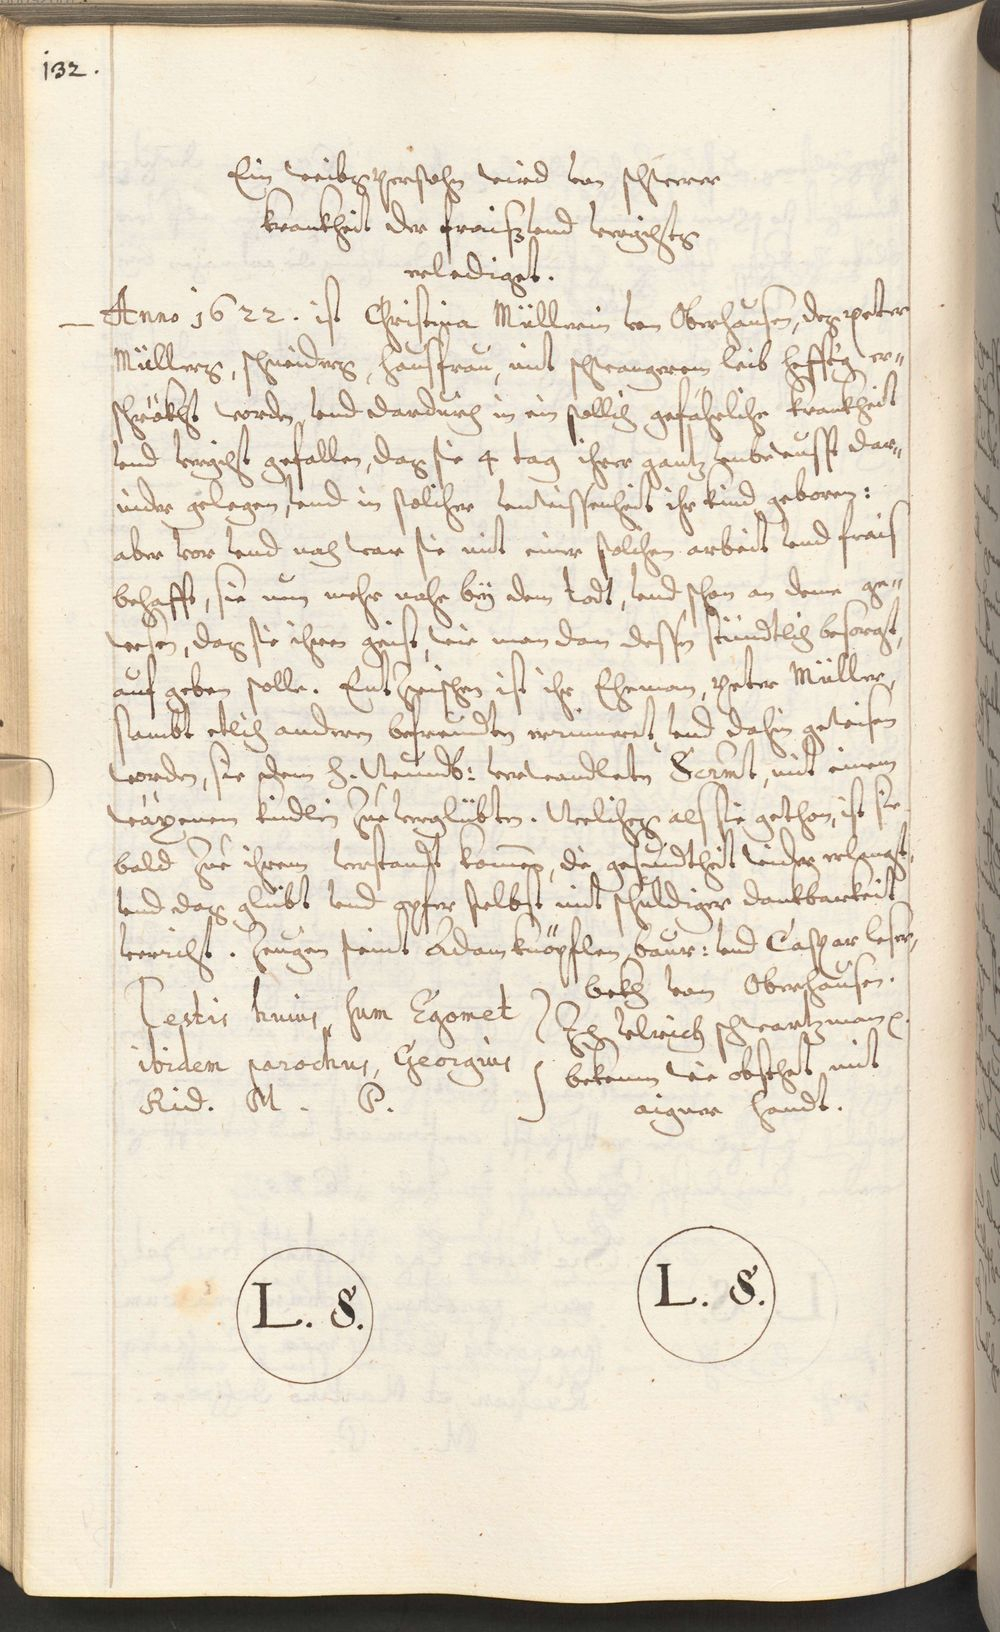 132.
Ein weibspersohn wird von schwerer
krankheit der fraiß vnd vergichts
erlediget.
Anno 1622. ist Christina Müllerin von Oberhausen, des Peter
Müllers, schneiders, hausfrau, mit schwangerem leib hefftig er„
schrökht worden, vnd dardurch in ein sollich gefährliche krankheit
vnd vergicht gefallen, das sie 4 tag ihrer gantz vnbewusst dar„
nider gelegen, vnd in solicher vnwissenheit ihr kind geboren:
aber vor vnd nach war sie mit einer solchen arbeit vnd frais
behafft, sie nun mehr nahe bÿ dem todt, vnd schon an deme ge„
wesen, das sie ihren geist, wie man dan dessen stündtlich besorgt,
auf geben solle. Entzwischen ist ihr Eheman, Peter Müller,
sambt etlich anderen befreündten erinneret vnd dahin gewisen
worden, sie dem H. Neunb: verwandleten Scrmt, mit einem
wäxenem kindlin zue verglübten. Welches als sie gethon, ist sie
bald zue ihrem verstandt kommen, die gesundtheit wider erlangt,
vnd das glübt vnd opfer selbst mit schuldiger dankbarkeit
verricht. Zeugen seint Adam knöpflen, baur: vnd Caspar leser,
bekh von Oberhausen.
Testis huius sum Egomet
ibidem parochus, Georgius
Rid. M. P.
Ich Vlrich schwartzman
bekenn wie obsthet mit
aigner handt.
L. S.
L. S.